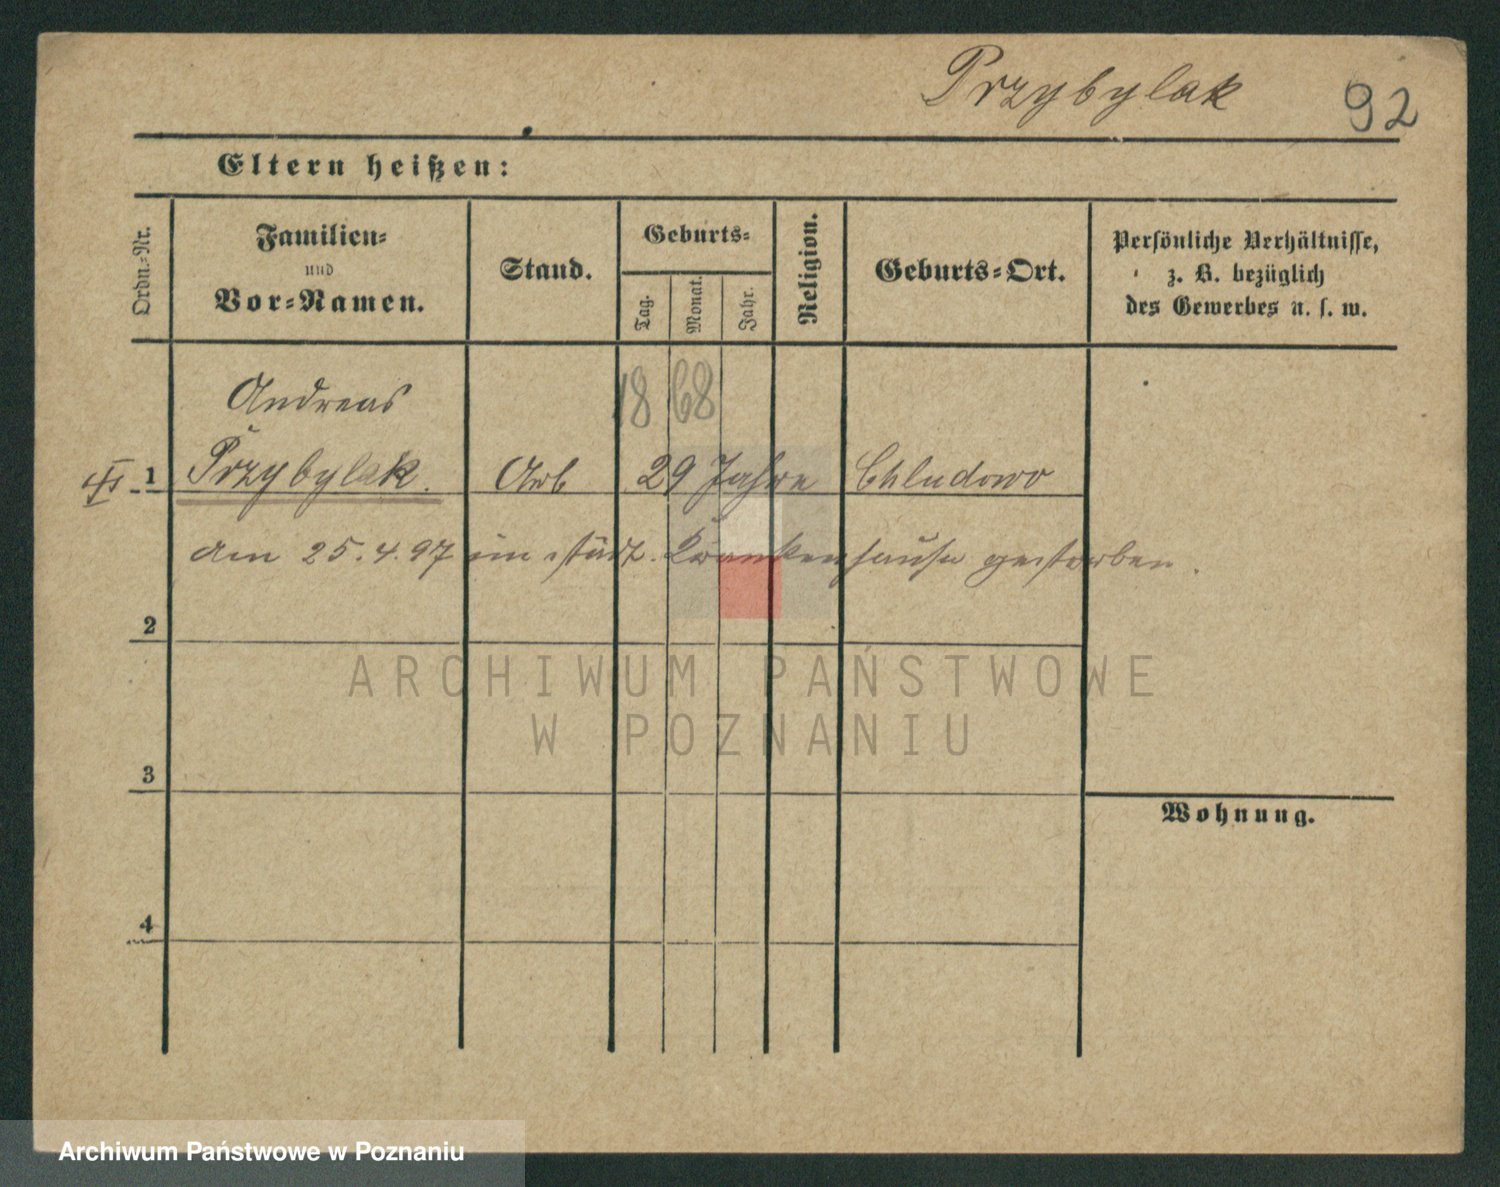 Przybylak 92
Eltern heißen:
Ordn.-Nr.
Familien-
und
Vor-Namen.
Stand.
Geburts-
Tag.
Monat.
Jahr.
Religion.
Geburts-Ort.
Persönliche Verhältnisse,
z. B. bezüglich
des Gewerbes u. s. w.
Andreas
1868
1 Przybylak. Arb 29 Jahre Chludowo
am 25.4.97 im städt. Krankenhause gestorben.
2
ARCHIWUM PAŃSTWOWE
W POZNANIU
3
Wohnung.
4
Archiwum Państwowe w Poznaniu